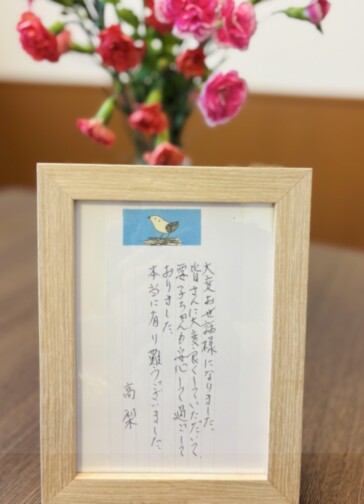 大変お世話様になりました。
皆さんに大変良くしていただいて、
栗子ちゃんも安心して過ごして
おりました。
本当に有り難うございました。
高梨